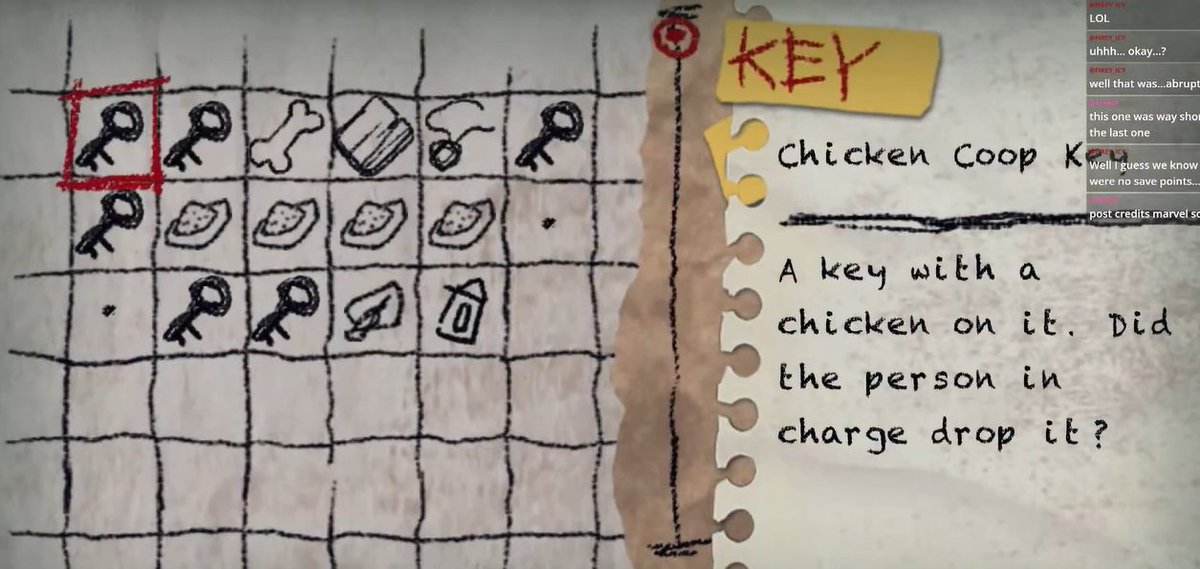 KEY
Chicken Coop Key
A key with a
chicken on it. Did
the person in
charge drop it?
@FIREY_ICY
LOL
@FIREY_ICY
uhhh... okay...?
@FIREY_ICY
well that was...abrupt
this one was way shor
the last one
Well I guess we know
were no save points...
post credits marvel sc